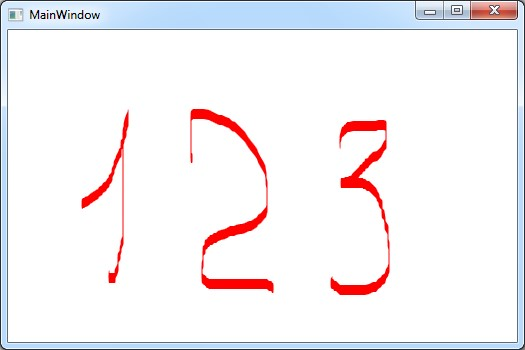 MainWindow
1 2 3